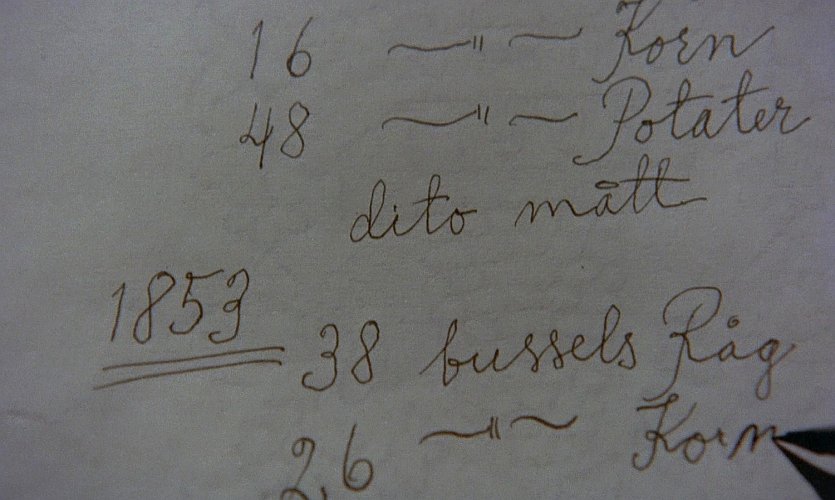 16 —"— Korn
48 —"— Potater
dito mått
1853
38 bussels Råg
26 —"— Korn